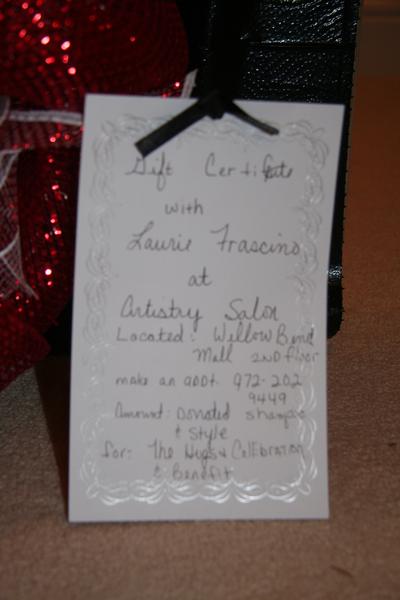 Gift Certificate
with
Laurie Frascino
at
Artistry Salon
Located: Willow Bend
Mall 2ND floor
make an appt. 972-202
9449
Amount: Donated shampoo
& style
for: The Hugs & CelEbration
& Benefit